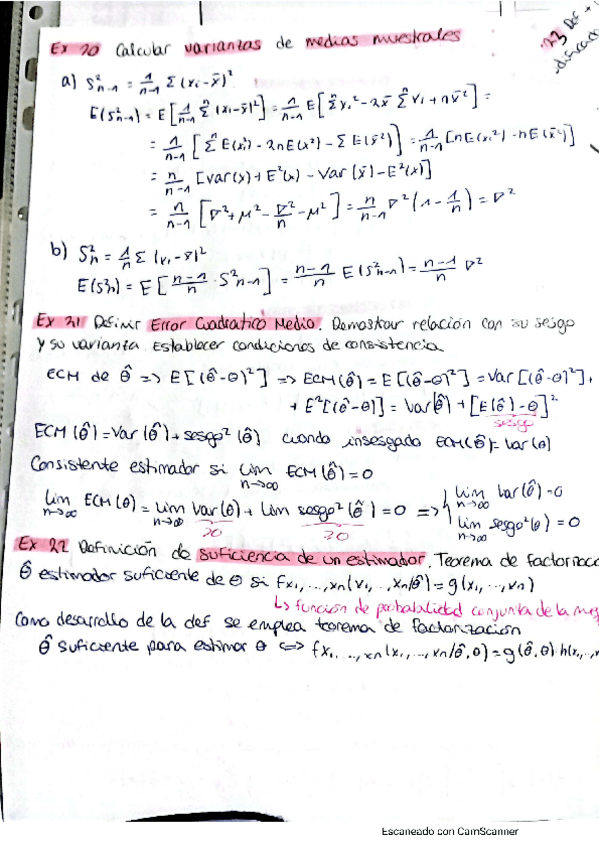 Ex 20 Calcular varianzas de medias muestrales
23 DEF
a) S²n-1 = 1/n-1 Σ(xi-x̄)²
E(S²n-1) = E[1/n-1 Σ(xi-x̄)²] = 1/n-1 E[Σxi² - 2x̄ Σxi + nx̄²] =
= 1/n-1 [Σ E(xi²) - 2nE(x̄²) - Σ E(x̄²)] = 1/n-1 [nE(xi²) - nE(x̄²)]
= n/n-1 [Var(x) + E²(x) - Var(x̄) - E²(x)]
= n/n-1 [∇² + μ² - ∇²/n - μ²] = n/n-1 ∇² (1 - 1/n) = ∇²
b) S²n = 1/n Σ(xi-x̄)²
E(S²n) = E[n-1/n · S²n-1] = n-1/n E(S²n-1) = n-1/n ∇²
Ex 21 Definir Error Cuadratico Medio. Demostrar relación con su sesgo
y su varianza Establecer condiciones de consistencia
ECM de θ̂ => E[(θ̂-θ)²] => ECM(θ̂) = E[(θ̂-θ)²] = Var[(θ̂-θ)²] +
+ E²[(θ̂-θ)] = Var(θ̂) + [E(θ̂) - θ]²
sesgo
ECM(θ̂) = Var(θ̂) + sesgo²(θ̂) cuando insesgado ECM(θ̂) = Var(θ)
Consistente estimador si lim n→∞ ECM(θ̂) = 0
lim n→∞ ECM(θ) = lim n→∞ Var(θ) + lim sesgo²(θ̂) = 0 => { lim n→∞ Var(θ̂) = 0
≥0 ≥0 lim n→∞ sesgo²(θ) = 0
Ex 22 Definición de suficiencia de un estimador. Teorema de
θ̂ estimador suficiente de θ si fx1,...,xn(x1,...,xn/θ̂) = g(x1,...,xn)
↳ función de probabilidad conjunta de la
Como desarrollo de la def se emplea teorema de factorización
θ̂ suficiente para estimar θ <=> fx1,...,xn(x1,...,xn/θ̂,θ) = g(θ̂,θ)·h(x1,...,
Escaneado con CamScanner